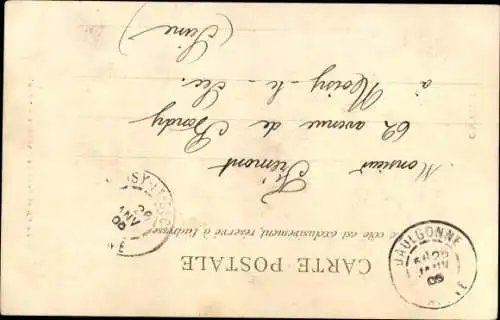 CARTE POSTALE
Ce côté est exclusivement réservé à l'adresse
Monsieur
Frémont
62 avenue de Bondy
à Noisy-le-Sec
(Seine)
JAULGONNE
26
JANV
05
NOISY-LE-SEC
26
JANV
05